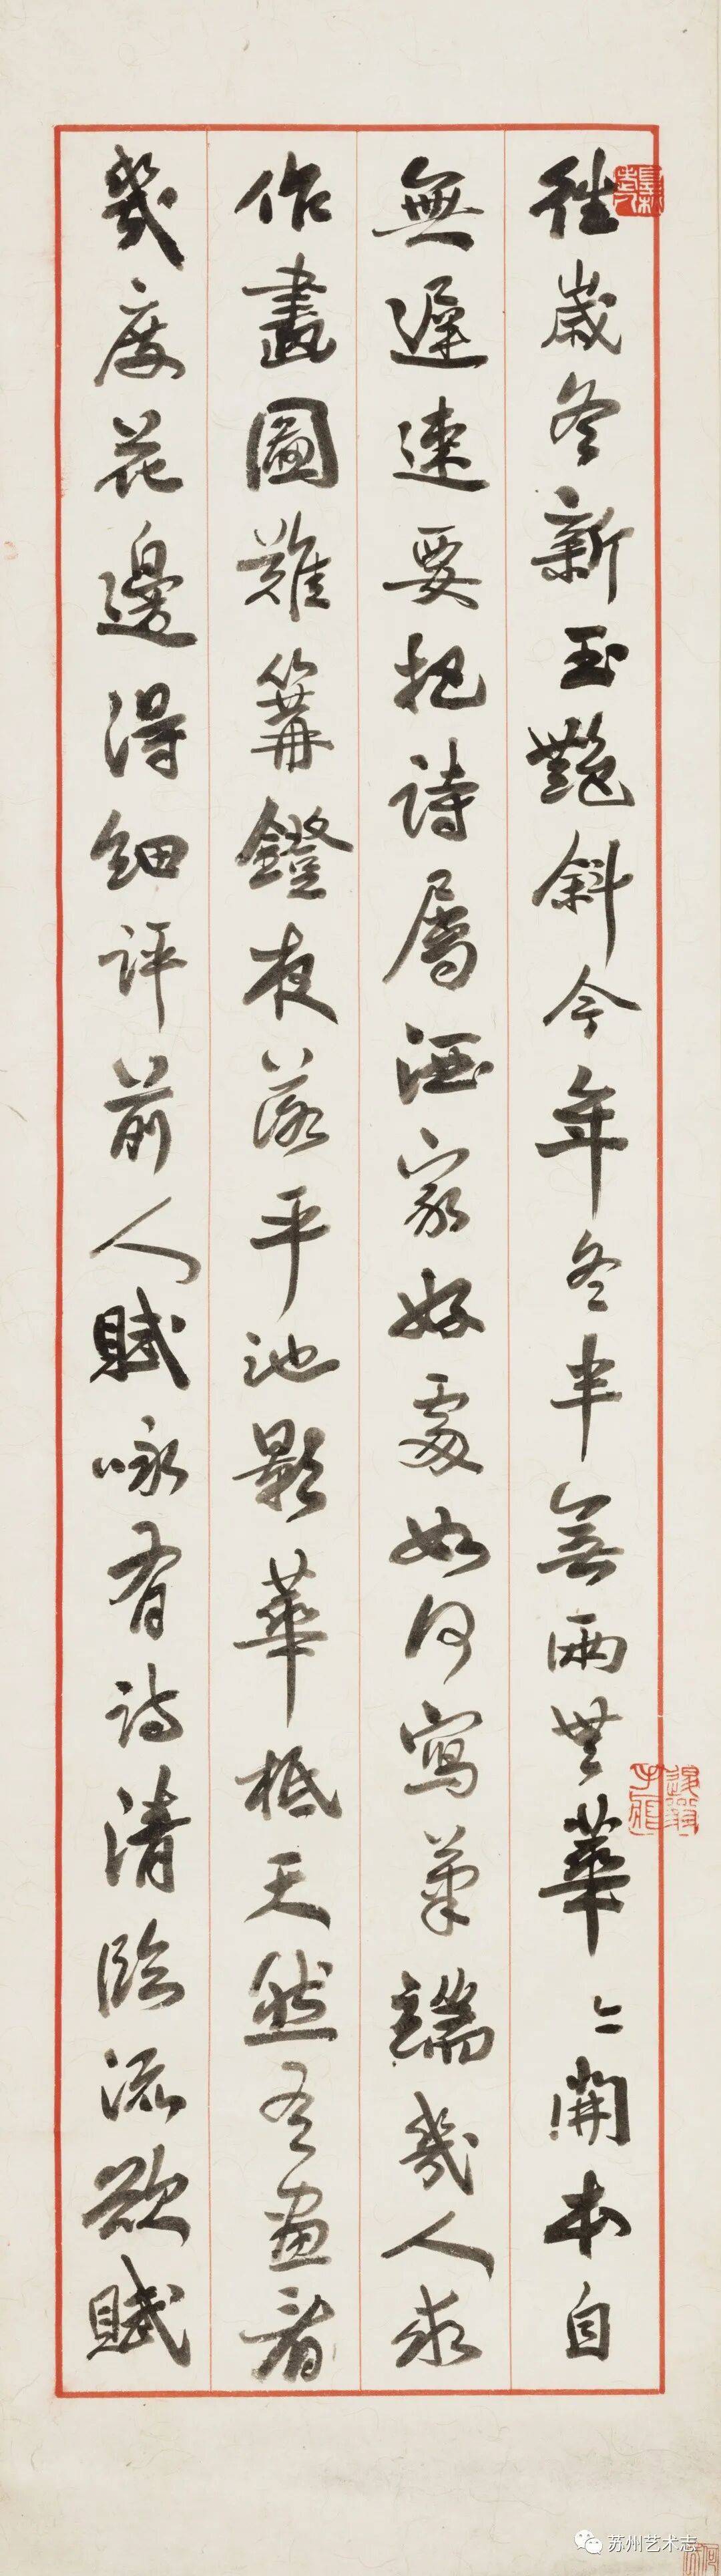 徃歲冬新玉艷斜今年冬半兩華〻開本自
無遲速要把詩屬酒家好處如何寫筆端幾人求
作畫圖難篝鐙夜落平池影華柢天然畫看
幾度花邊得細評前人賦咏有詩清臨流欲賦
苏州艺术志